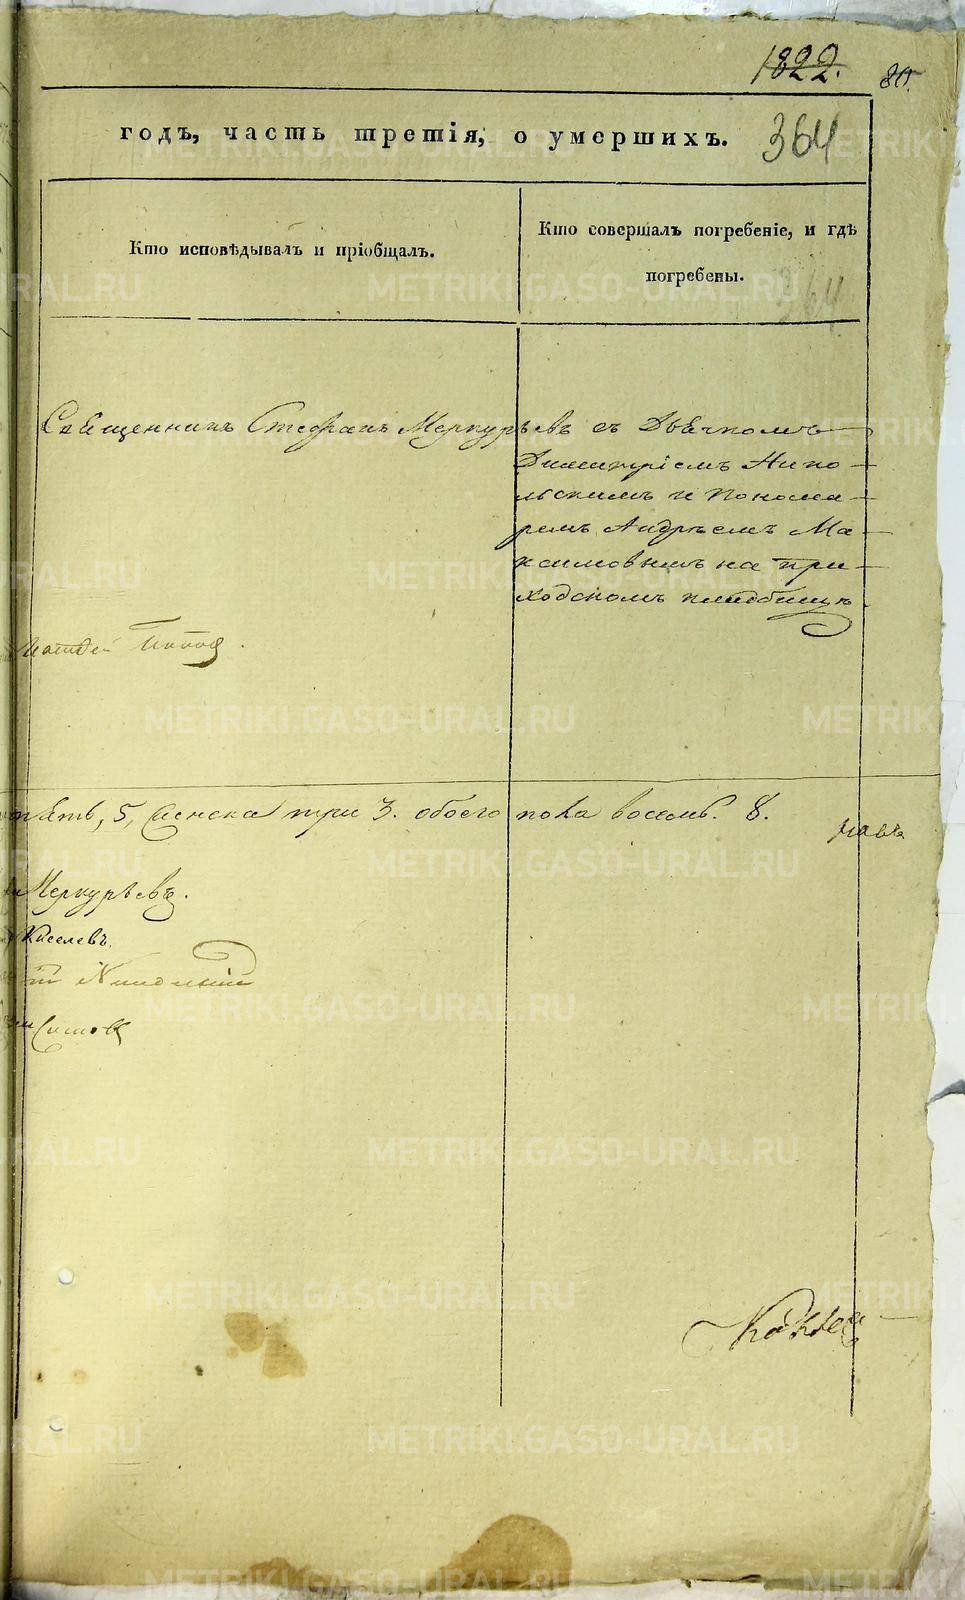 1822.
80.
годъ, часть третія, о умершихъ.
364
Кто исповѣдывалъ и пріобщалъ.
Кто совершалъ погребеніе, и гдѣ
погребены.
364
Священникъ Стефанъ Меркурьевъ съ Дьячкомъ
Димитріемъ Нико-
льскимъ и Понома-
ремъ Андреемъ Ма-
ксимовымъ на при-
ходскомъ кладбищѣ
Попов
пять, 5, женска три 3. обоего пола восемь. 8.
Меркурьевъ.
Киселевъ.
Никольскій
METRIKI.GASO-URAL.RU